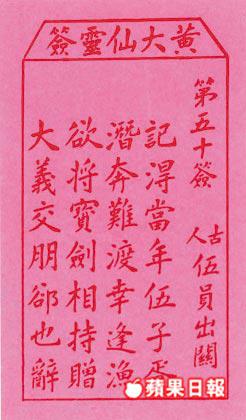 黃大仙靈簽
第五十簽 古人 伍員出關
記淂當年伍子胥
潛奔難渡幸逢漁
欲將寶劍相持贈
大義交朋郤也辭
蘋果日報